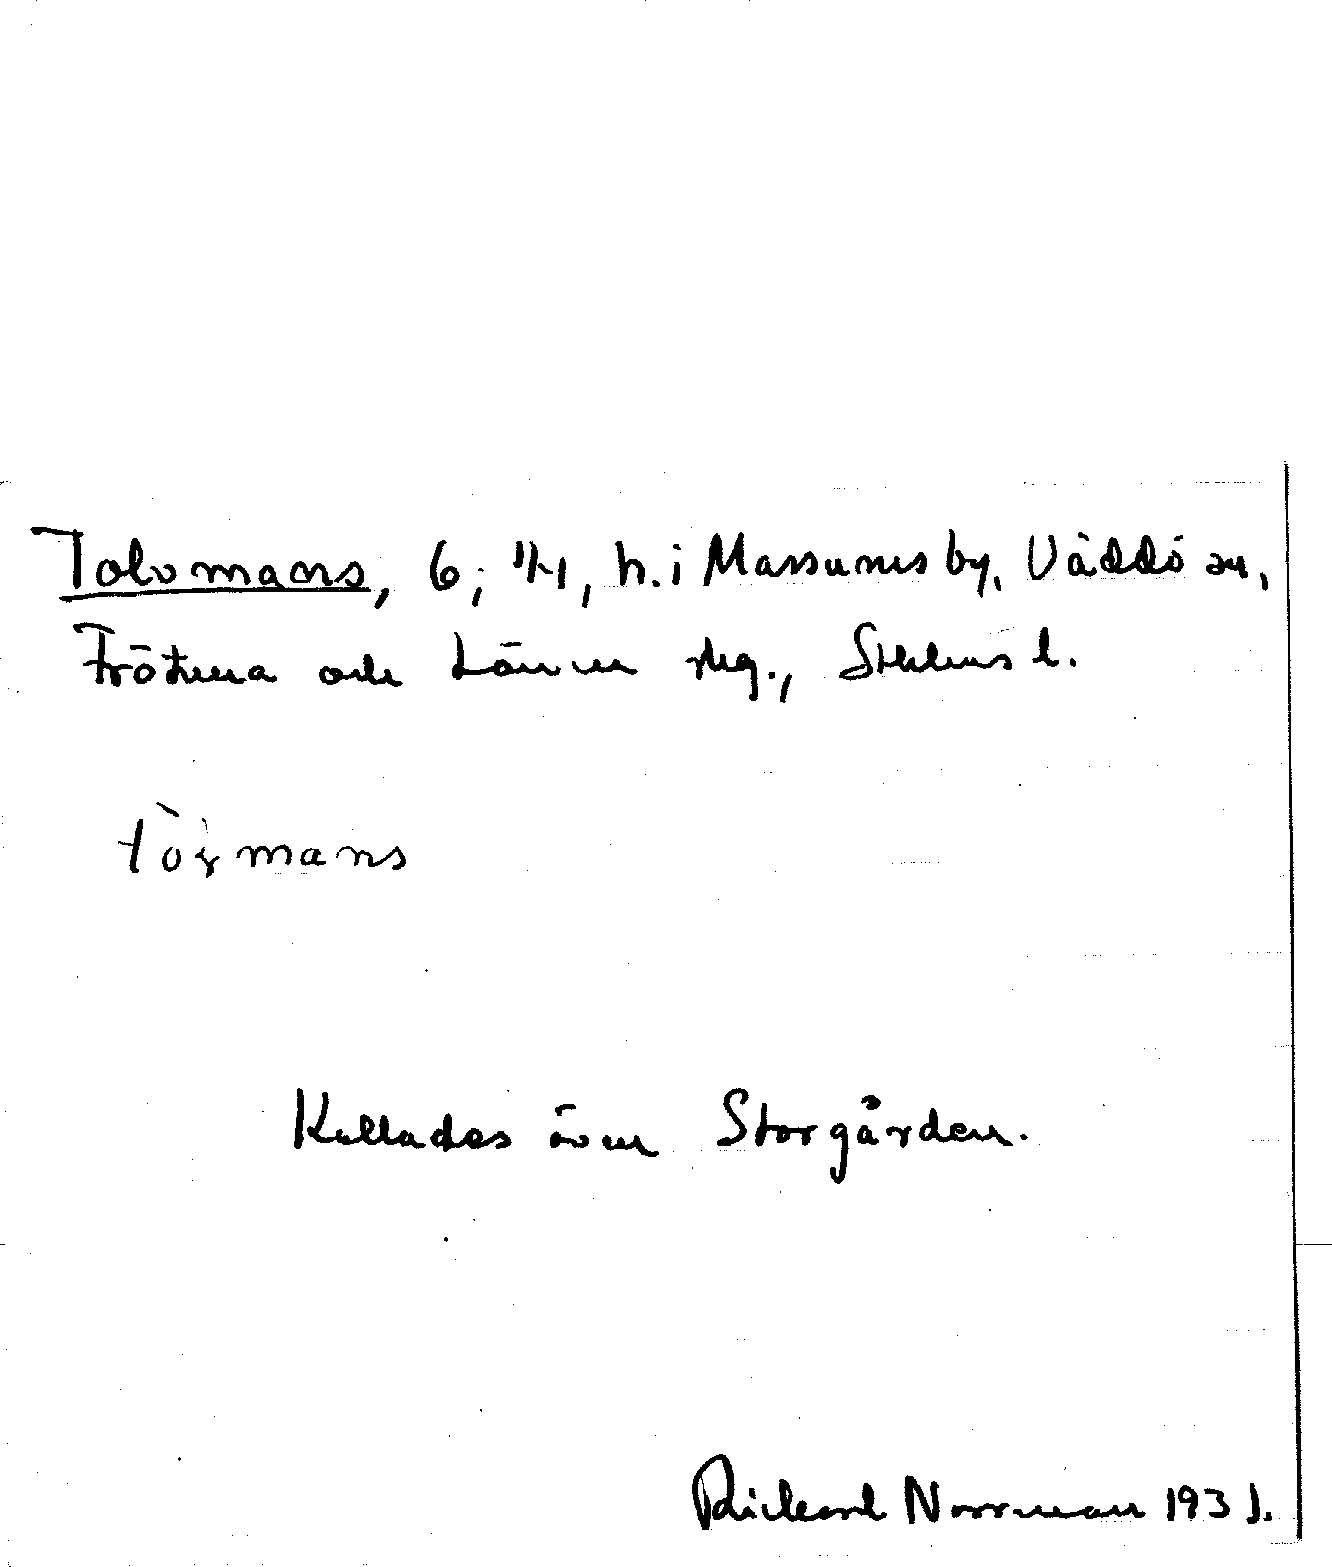 Tolvmans, 6; 1/1, h. i Massums by, Väddö sn,
Frötuna och Länna skg., Sthlms l.
Kallades även Storgården.
Rickard Norrman 1931.